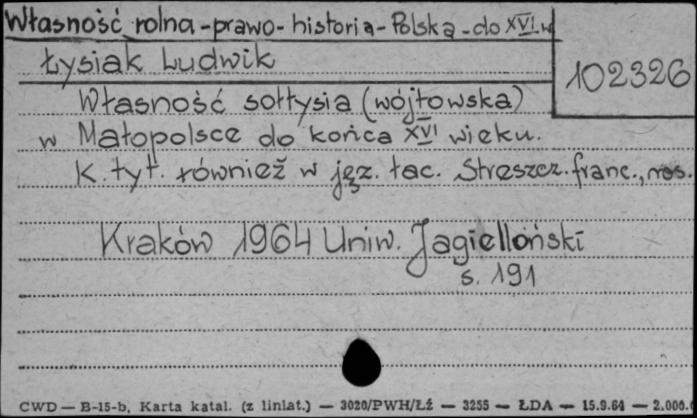 Własność rolna - prawo - historia - Polska - do XVI w
Łysiak Ludwik
102326
Własność sołtysia (wójtowska)
w Małopolsce do końca XVI wieku.
K. tyt. również w jęz. łac. Streszcz. franc., ros.
Kraków 1964 Uniw. Jagielloński
s. 191
CWD — B-15-b, Karta katal. (z liniat.) — 3020/PWH/Łź — 3255 — ŁDA — 15.9.61 — 2.000.